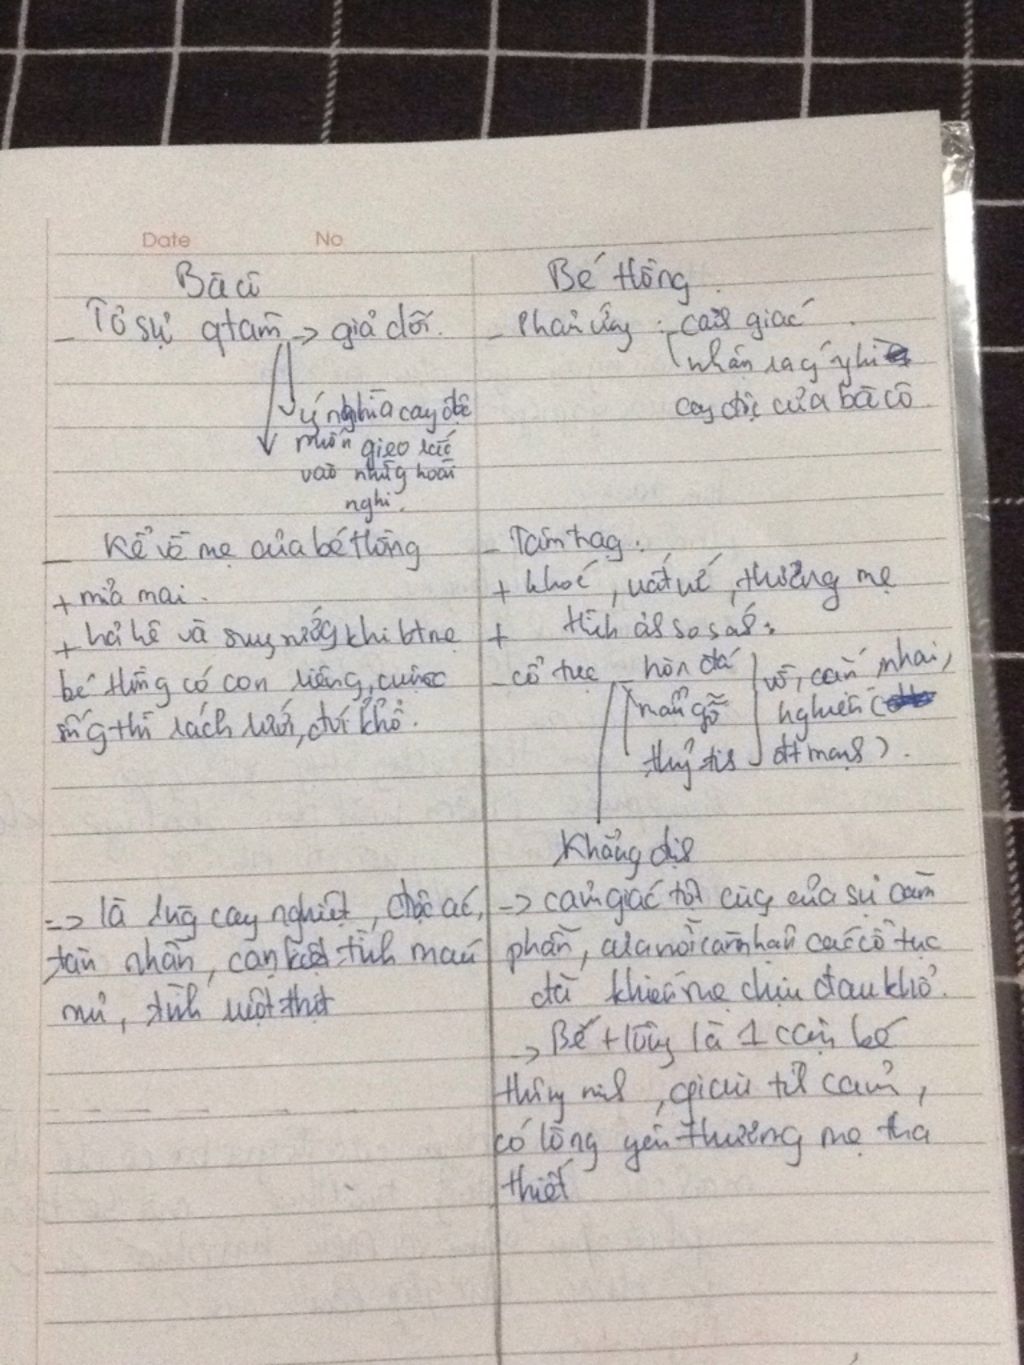 Date No
Bà cô
- Tỏ sự qtâm -> giả dối.
ý nghĩa cay độc
muốn gieo rắc
vào những hoài
nghi.
- Kể về mẹ của bé Hồng
+ mỉa mai.
+ hả hê và sung sướng khi bt mẹ
bé Hồng có con riêng, cuộc
sống thì rách rưới, đói khổ.
=> là lg cay nghiệt, độc ác,
tàn nhẫn, cạn tình máu
mủ, tình ruột thịt
Bé Hồng
- Phản ứng : - cảm giác
nhận ra ý nghĩ
cay độc của bà cô
- Tâm trạg :
+ khóc, uất ức, thương mẹ
+ Hình ảnh so sánh :
- cổ tục hòn đá vồ, cắn, nhai,
mẩu gỗ nghiến (
thủy tinh đt mạnh).
Khẳng định
-> cảm giác tột cùg của sự căm
phẫn, cổ tục
đã khiến mẹ chịu đau khổ.
-> Bé Hồng là 1 cậu bé
thông minh, giàu tình cảm,
có lòng yêu thương mẹ tha
thiết